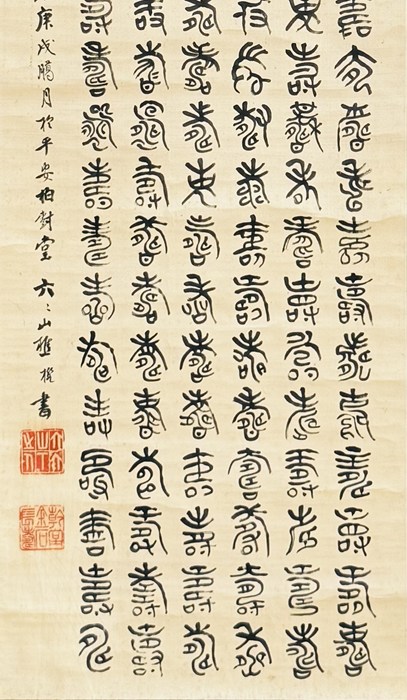 壽壽壽壽壽壽壽壽壽壽壽壽
壽壽壽壽壽壽壽壽壽壽壽壽
壽壽壽壽壽壽壽壽壽壽壽壽
壽壽壽壽壽壽壽壽壽壽壽壽
壽壽壽壽壽壽壽壽壽壽壽壽
壽壽壽壽壽壽壽壽壽壽壽壽
庚戌臈月於平安柏堂 六〻山樵書